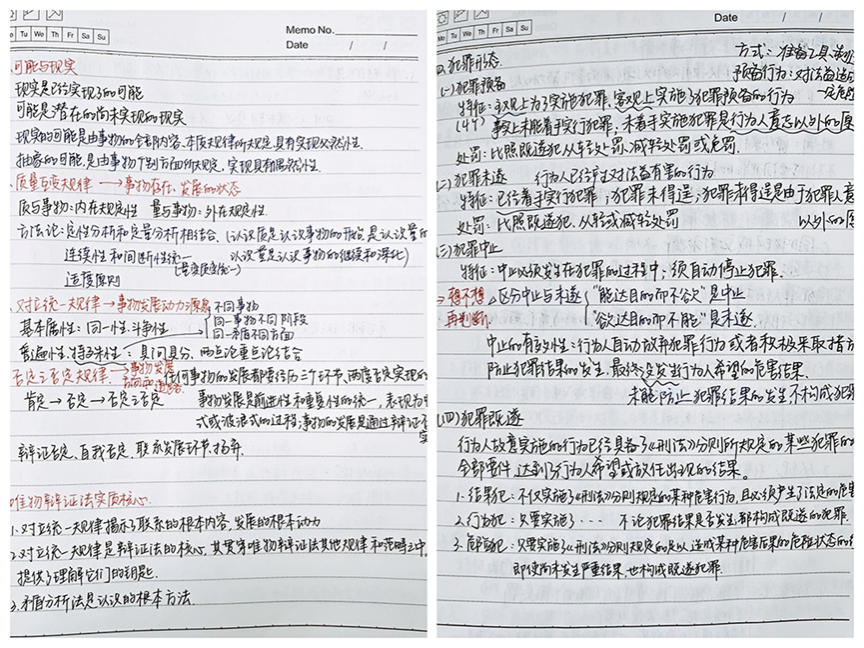 Tu We Th Fr Sa Su
Memo No.
Date / /
可能与现实
现实是已经实现了的可能
可能是潜在的尚未实现的现实
现实的可能是由事物的全部内容、本质规律所规定,具有实现必然性.
抽象的可能是由事物个别方面所规定,实现具有偶然性.
质量互变规律 → 事物存在、发展的状态
质与事物:内在规定性 量与事物:外在规定性.
方法论:定性分析和定量分析相结合.(认识质是认识事物的开始,是认识量的
连续性和间断性统一 认识量是认识事物的继续和深化)
适度原则
对立统一规律→事物发展动力源泉
不同事物
基本属性:同一性.斗争性
同一事物不同阶段
同一矛盾不同方面
普遍性.特殊性:具问具分,两点论重点论结合
否定之否定规律.→事物发展
任何事物的发展都要经历三个环节、两度否定实现的
肯定→否定→否定之否定 事物发展是前进性和重复性的统一,表现为
式或波浪式的过程;事物的发展是通过辩证否
辩证否定、自我否定、联系发展环节、扬弃.
唯物辩证法实质核心.
1.对立统一规律揭示了联系的根本内容,发展的根本动力
2.对立统一规律是辩证法的核心,其贯穿唯物辩证法其他规律和范畴之中,
提供了理解它们的钥匙.
3.矛盾分析法是认识的根本方法.
Mo Tu We Th Fr Sa Su
Date / /
犯罪形态
方式:准备工具、
(一)犯罪预备
预备行为:对法益造
特征:主观上为了实施犯罪,客观上实施了犯罪预备的行为
(4个) 事实上未能着手实行犯罪,未着手实施犯罪是行为人意志以外的原
处罚:比照既遂犯从轻处罚、减轻处罚或免罚.
(二)犯罪未遂 行为人已经产生对法益有害的行为
特征:已经着手实行犯罪;犯罪未得逞;犯罪未得逞是由于犯罪人意
处罚:比照既遂犯、从轻或减轻处罚 以外的原
(三)犯罪中止
特征:中止必须发生在犯罪的过程中;须自动停止犯罪.
→想不想
区分中止与未遂
“能达目的而不欲”是中止
再判断.
“欲达目的而不能”是未遂.
中止的有效性:行为人自动放弃犯罪行为或者积极采取措
防止犯罪结果的发生.最终没发生行为人希望的危害结果.
未能防止犯罪结果的发生不构成犯
(四)犯罪既遂
行为人故意实施的行为已经具备了《刑法》分则所规定的某些犯罪的
全部要件,达到了行为人希望或放任出现的结果。
1.结果犯:不仅实施了《刑法》分则规定的某种危害行为,且必须产生了法定的危害
2.行为犯:只要实施了··· 不论犯罪结果是否发生,都构成既遂的犯罪.
3.危险犯:只要实施了《刑法》分则规定的足以造成某种危害后果的危险状态的
即使尚未发生严重结果,也构成既遂犯罪.